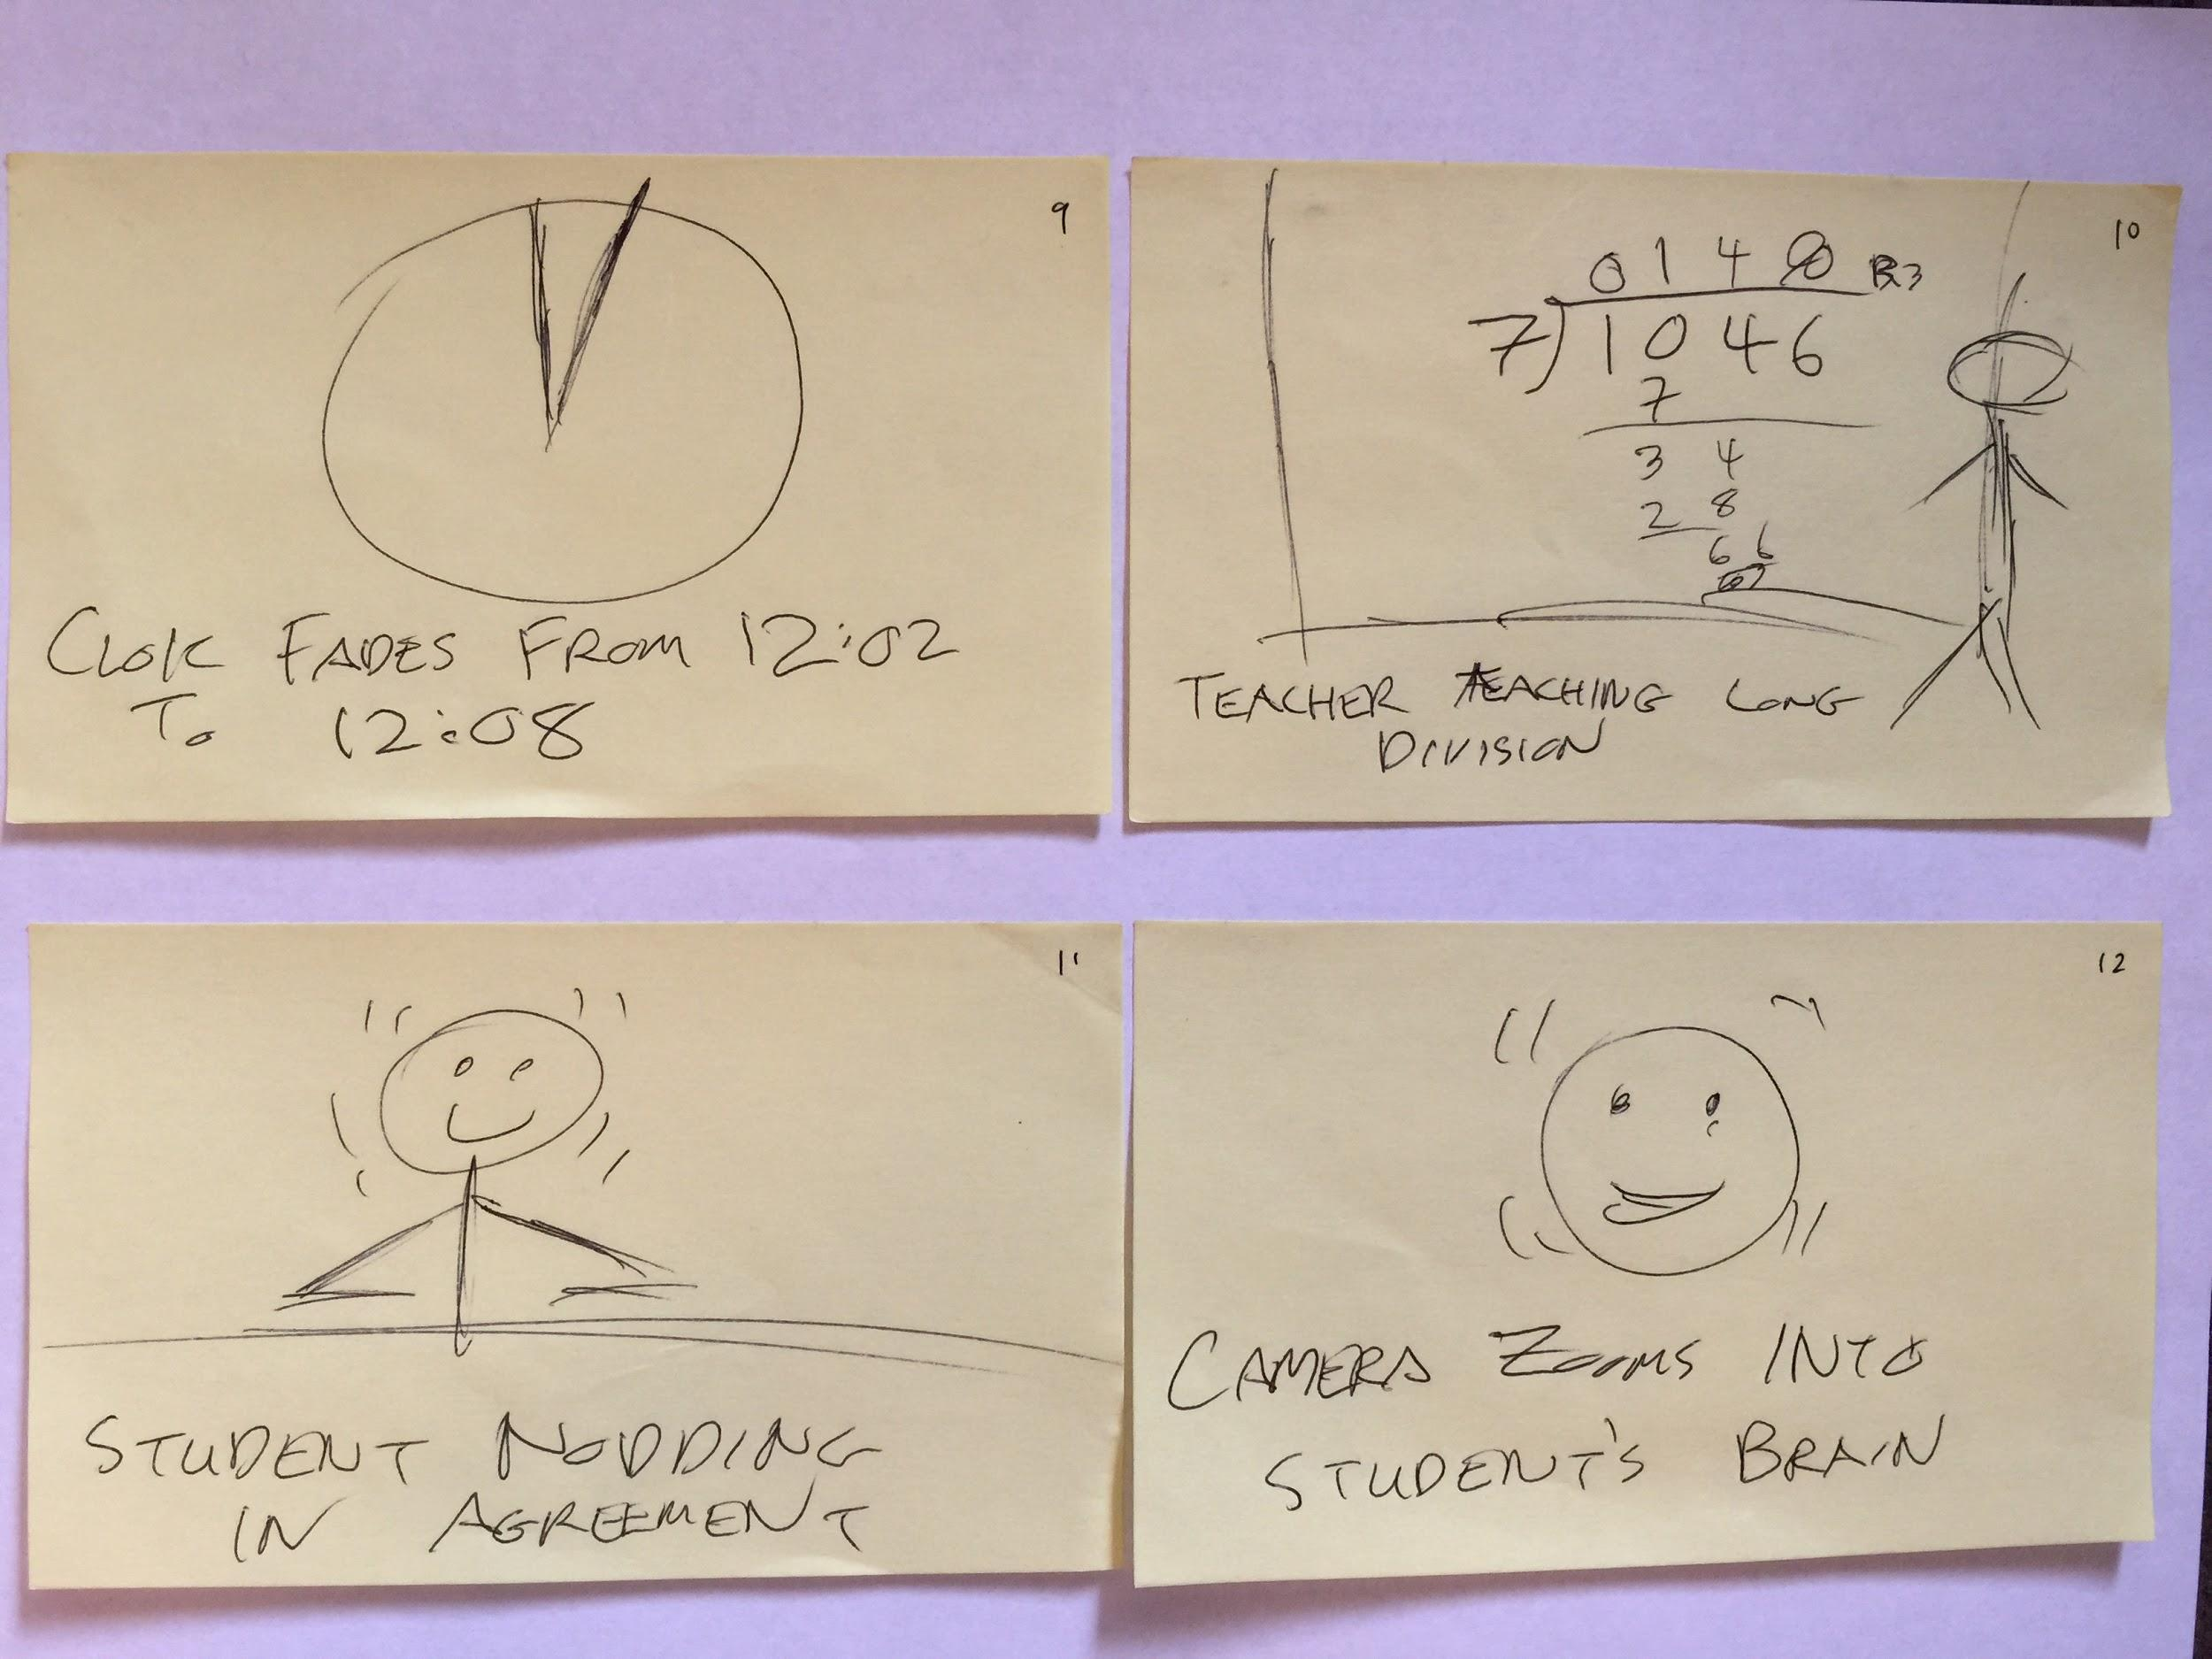 9
CLOK FADES FROM 12:02
TO 12:08
10
0 1 4 R3
7) 1 0 4 6
7
3 4
2 8
6 6
TEACHER TEACHING LONG
DIVISION
11
STUDENT NODDING
IN AGREEMENT
12
CAMERA ZOOMS INTO
STUDENT'S BRAIN